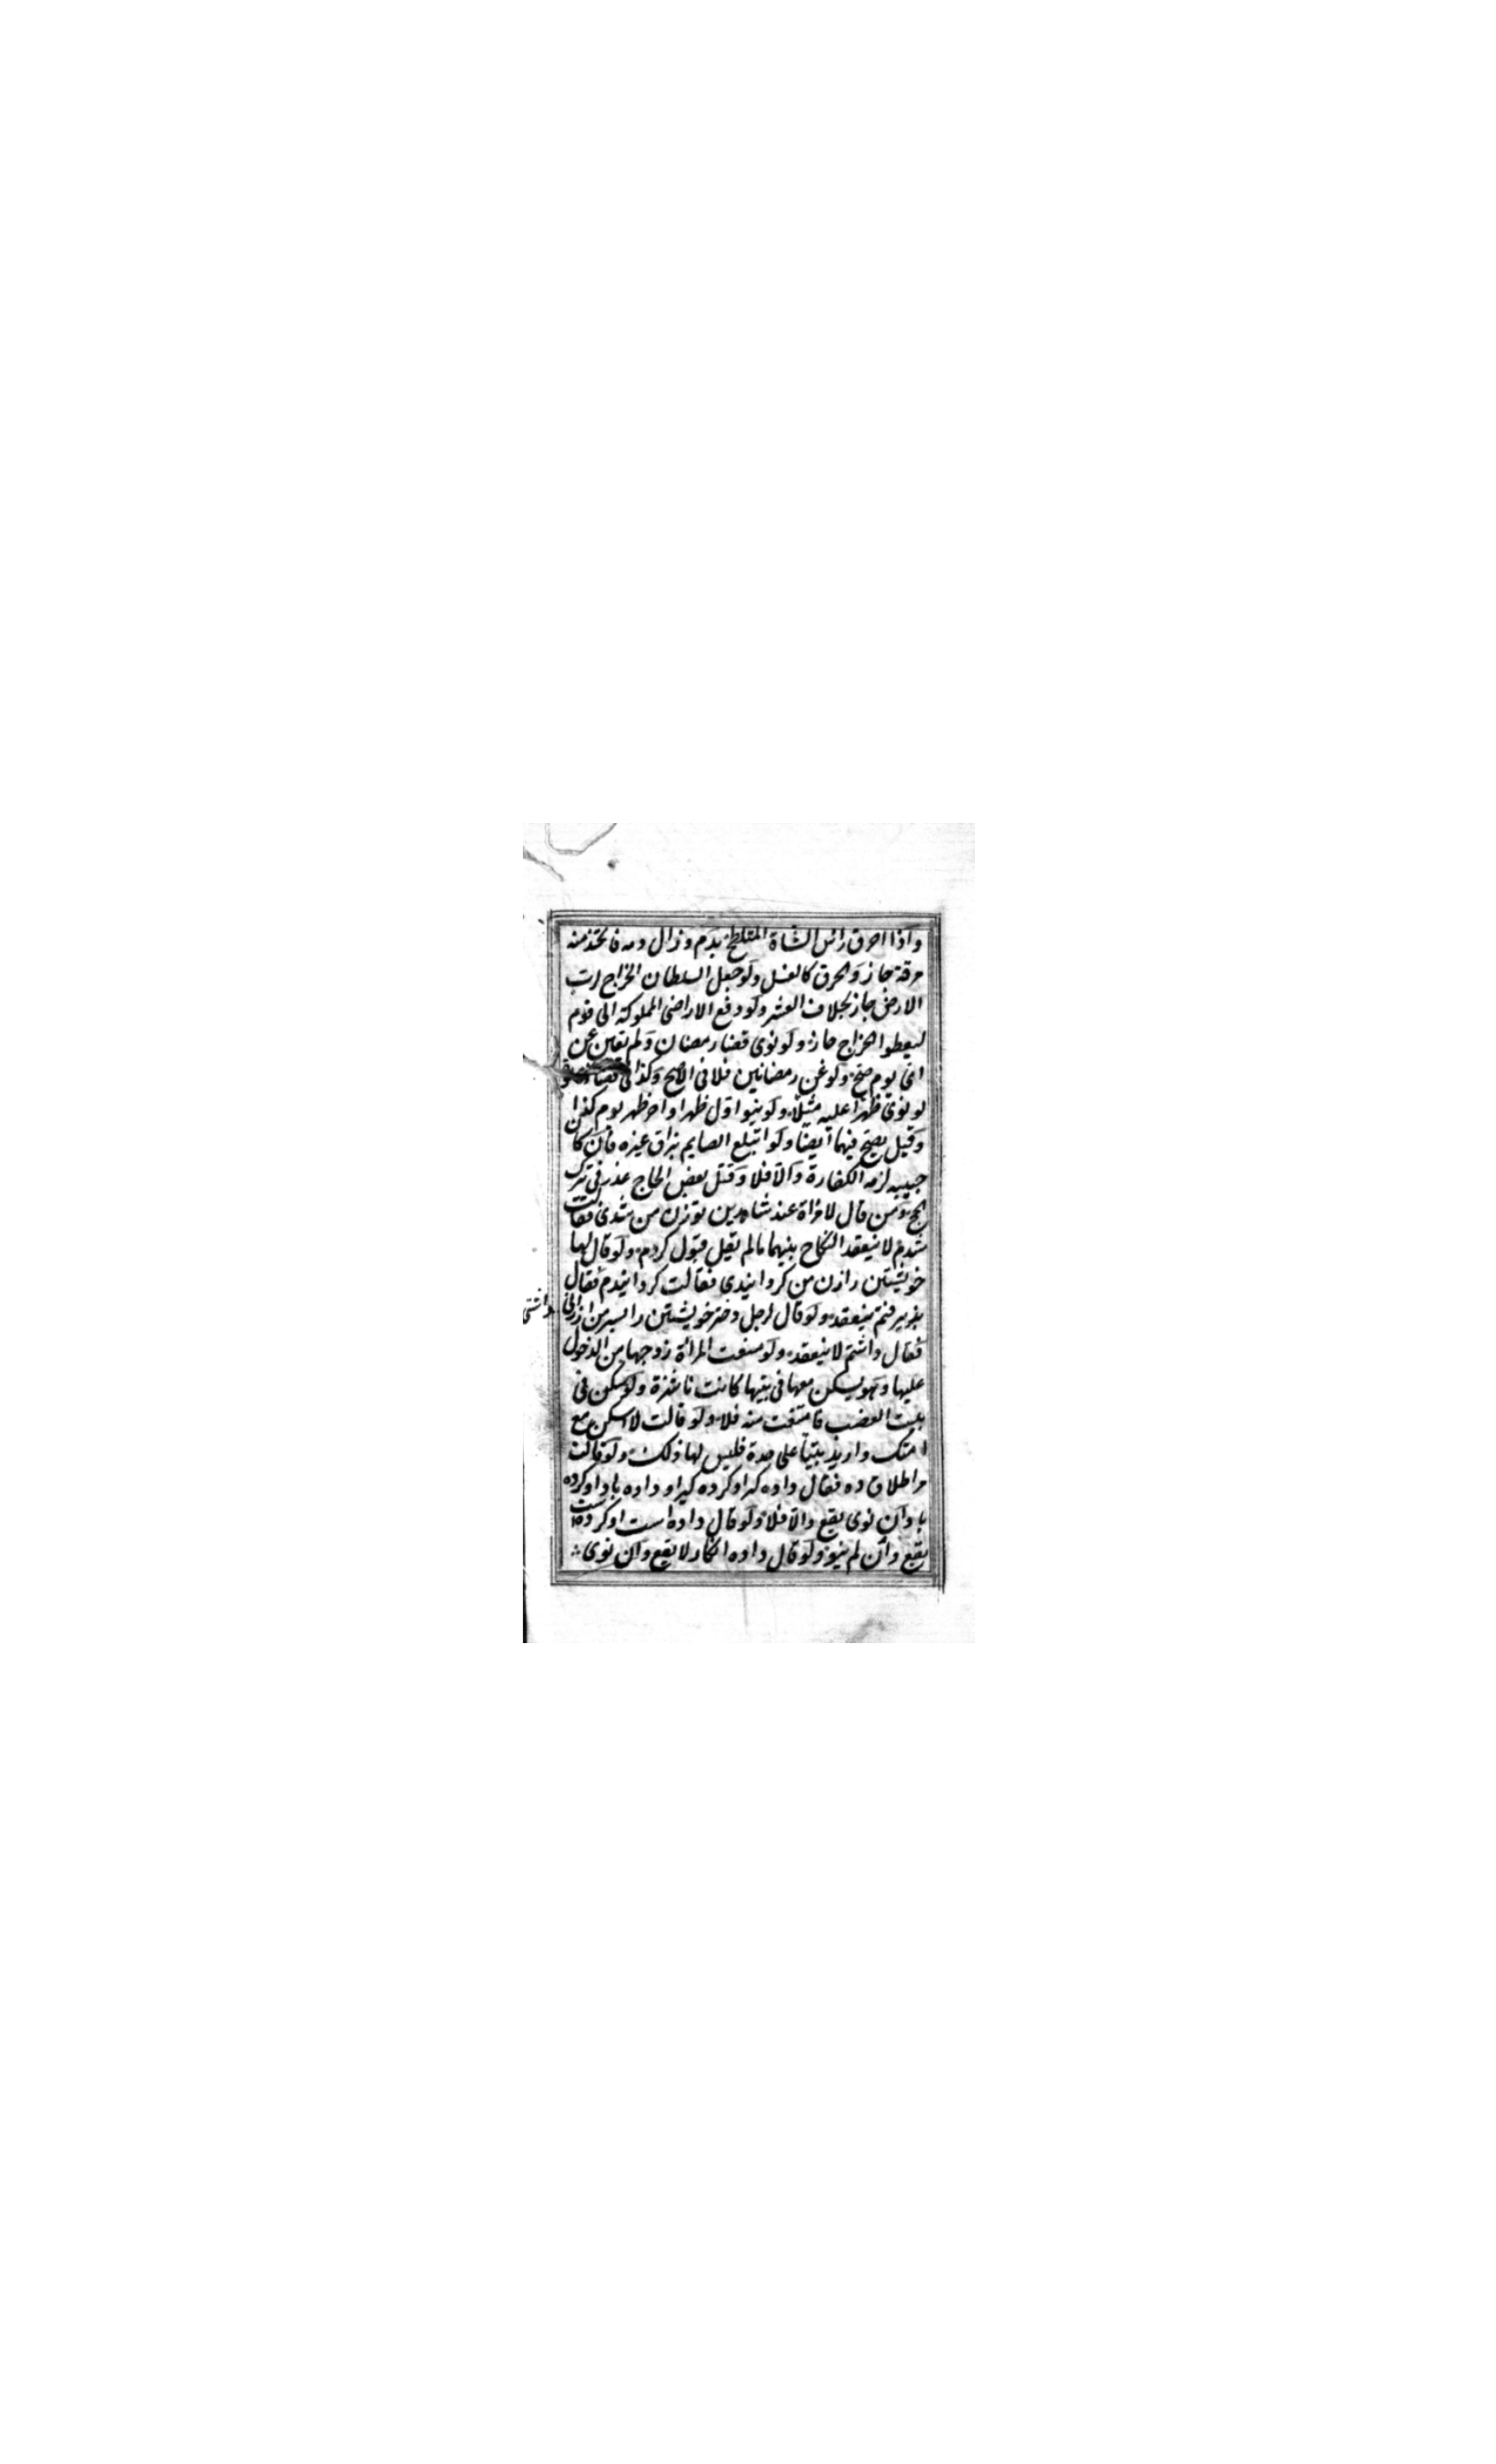 واذا احرق راس الشاة المتلطخ بدم وزال دمه فاتخذ منه
مرقة جاز والحرق كالغسل ولو جعل السلطان الخراج لرب
الارض جاز بخلاف العشر ولو دفع الاراضى المملوكة الى قوم
ليعطوا الخراج جاز ولو نوى قضا رمضان ولم يعين عن
اى يوم صح ولو عن رمضانين فلا فى الاصح وكذا فى قضا الصلوة
لو نوى ظهرا عليه مثلا ولو ينو اول ظهر او اخر ظهر يوم كذا
وقيل يصح فيهما ايضا ولو ابتلع الصايم بزاق غيره فان كان
حبيبه لزمه الكفارة والا فلا وقتل بعض الحاج عذر فى ترك
الحج ومن قال لامراة عند شاهدين تو زن من شدى فقالت
شدم لا ينعقد النكاح بينهما مالم تقل قبول كردم ولو قال لها
خويشتن را زن من كردانيدى فقالت كردانيدم فقال
بذيرفتم ينعقد ولو قال لرجل دختر خويشتن را بسر من ارزانى داشتى
فقال داشتم لا ينعقد ولو منعت المراة زوجها من الدخول
عليها وهو يسكن معها فى بيتها كانت ناشزة ولو سكن فى
بيت الغصب فامتنعت منه فلا ولو قالت لا اسكن مع
امتك واريد بيتا على حدة فليس لها ذلك ولو قالت
مرا طلاق ده فقال داده كير او كرده كير او داده باد او كرده
باد ان نوى يقع والا فلا ولو قال داده است او كرده است
يقع وان لم ينو ولو قال داده انكار لا يقع وان نوى